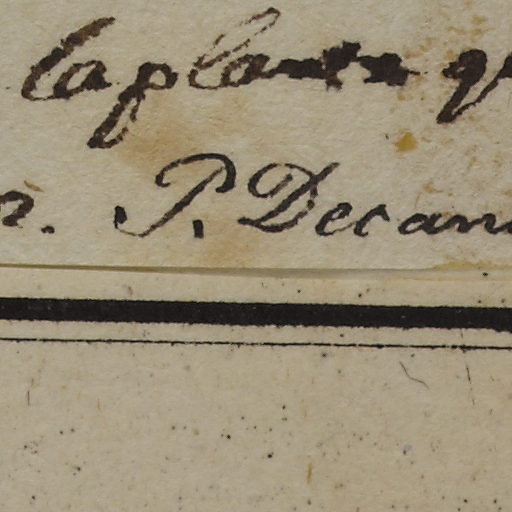 la planta q
r. P. Decan